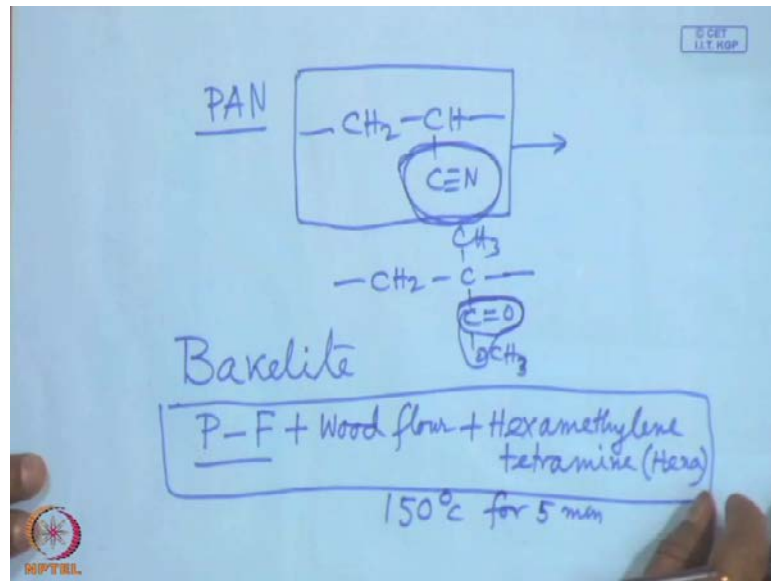 © CET
I.I.T. KGP
PAN
— CH2 — CH —
C≡N
CH3
— CH2 — C —
C=O
OCH3
Bakelite
P–F + Wood flour + Hexamethylene
tetramine (Hexa)
150°C for 5 min
NPTEL